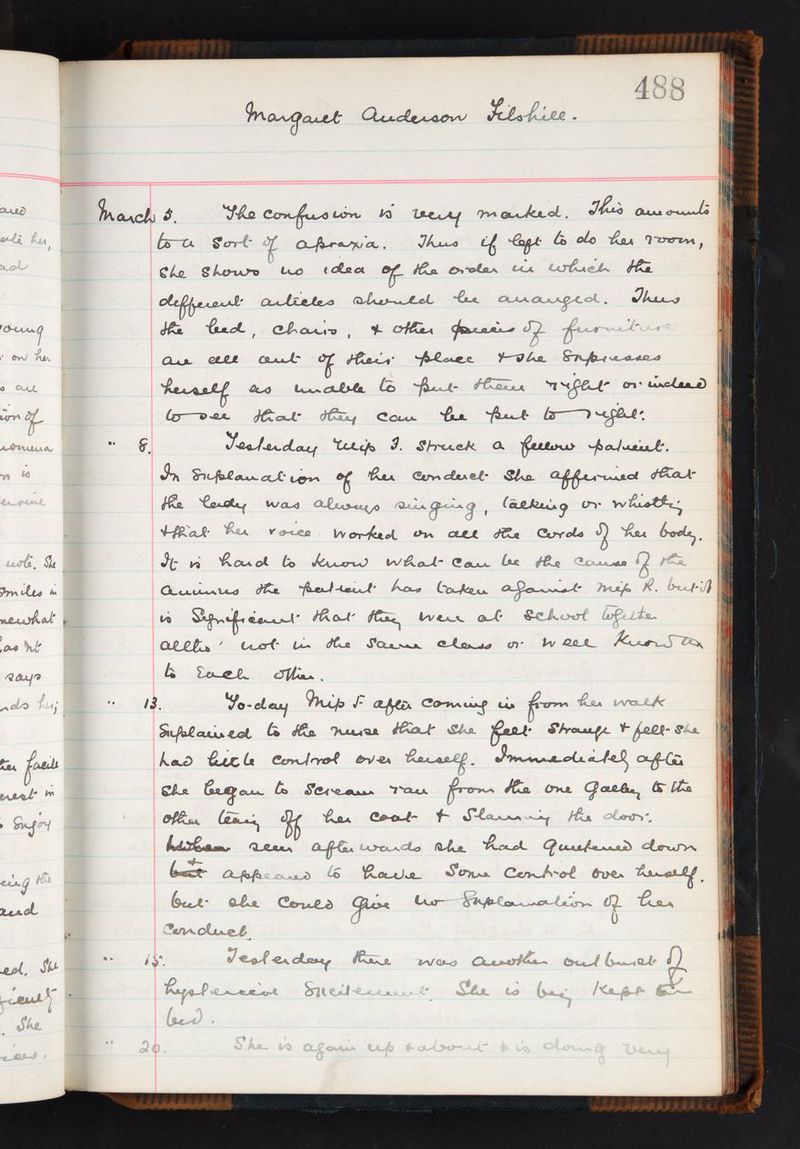 488
Margaret Anderson Filshill.
March 5. The confusion is very marked. This amounts
to a sort of apraxia. Thus if left to do her room,
she shows no idea of the order in which the
different articles should be arranged. Thus
the bed, chairs, & other pieces of furniture
are all out of their place & she expresses
herself as unable to put them right or indeed
to see that they can be put to right.
" 8. Yesterday Miss F. struck a fellow patient.
In explanation of her conduct she affirmed that
the lady was always singing, talking or whistling
& that her voice worked on all the cords of her body.
It is hard to know what can be the cause of the
animus the patient has taken against Miss R. but it
is significant that they were at school together
altho' not in the same class or well known
to each other.
" 13. To-day Miss F after coming in from her walk
explained to the nurse that she felt strange & felt she
had little control over herself. Immediately after
she began to scream ran from the one Gallery to the
other tearing off her coat & slamming the door.
When seen afterwards she had quietened down
but & appeared to have some control over herself.
but she could give no explanation of her
conduct.
" 15. Yesterday there was another outburst of
hysterical excitement. She is being kept in
bed.
" 20. She is again up & about & is doing very
ared
her,
young
on her
are
ion of
is
note. She
smiles in
newhat
says
her;
her facile
erest in
enjoy
ing the
and
ed. She
. She